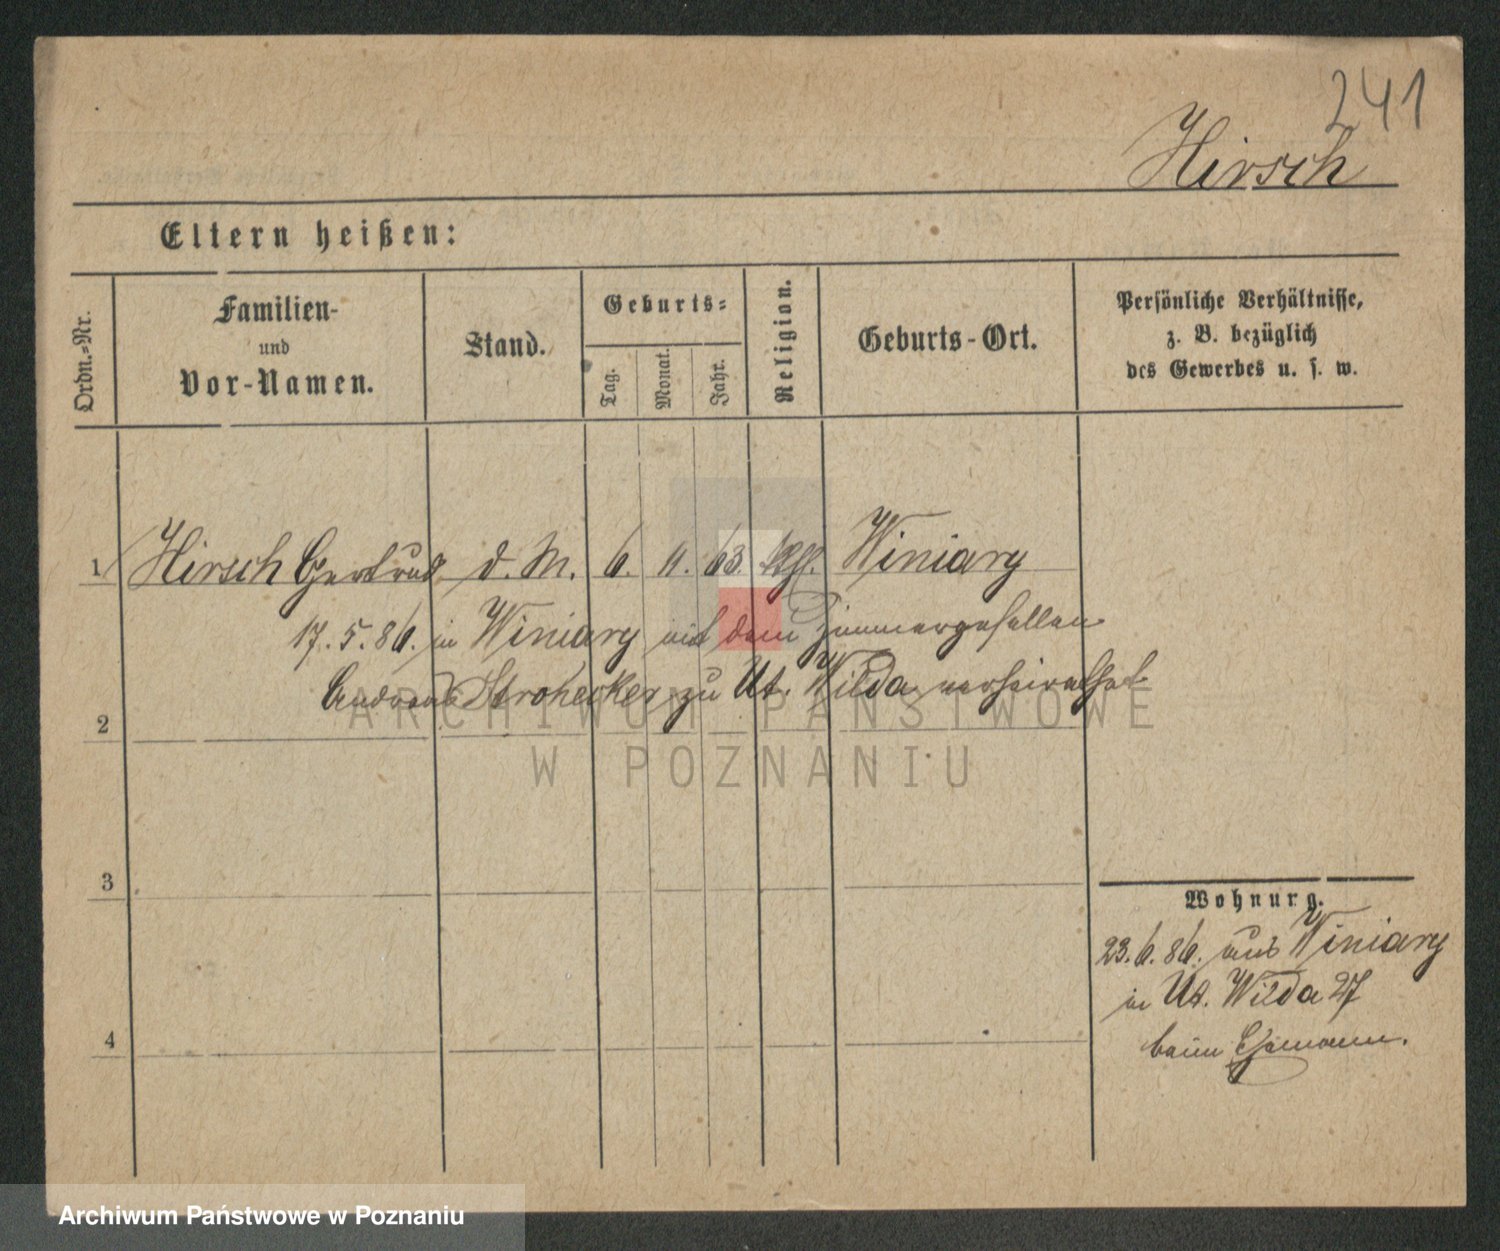 241
Hirsch
Eltern heißen:
Ordn.=Nr.
Familien-
und
Vor-Namen.
Stand.
Geburts=
Tag.
Monat.
Jahr.
Religion.
Geburts-Ort.
Persönliche Verhältnisse,
z. B. bezüglich
des Gewerbes u. s. w.
1 Hirsch Gertrud d. M. 6. 11. 63. Winiary
17. 5. 86. in Winiary mit dem Zimmergesellen
Andreas Strohecker zu Ut. Wilda verheirathet
2
ARCHIWUM PAŃSTWOWE
W POZNANIU
3
4
Wohnung.
23. 6. 86. aus Winiary
in Ut. Wilda 27
beim Ehemann.
Archiwum Państwowe w Poznaniu